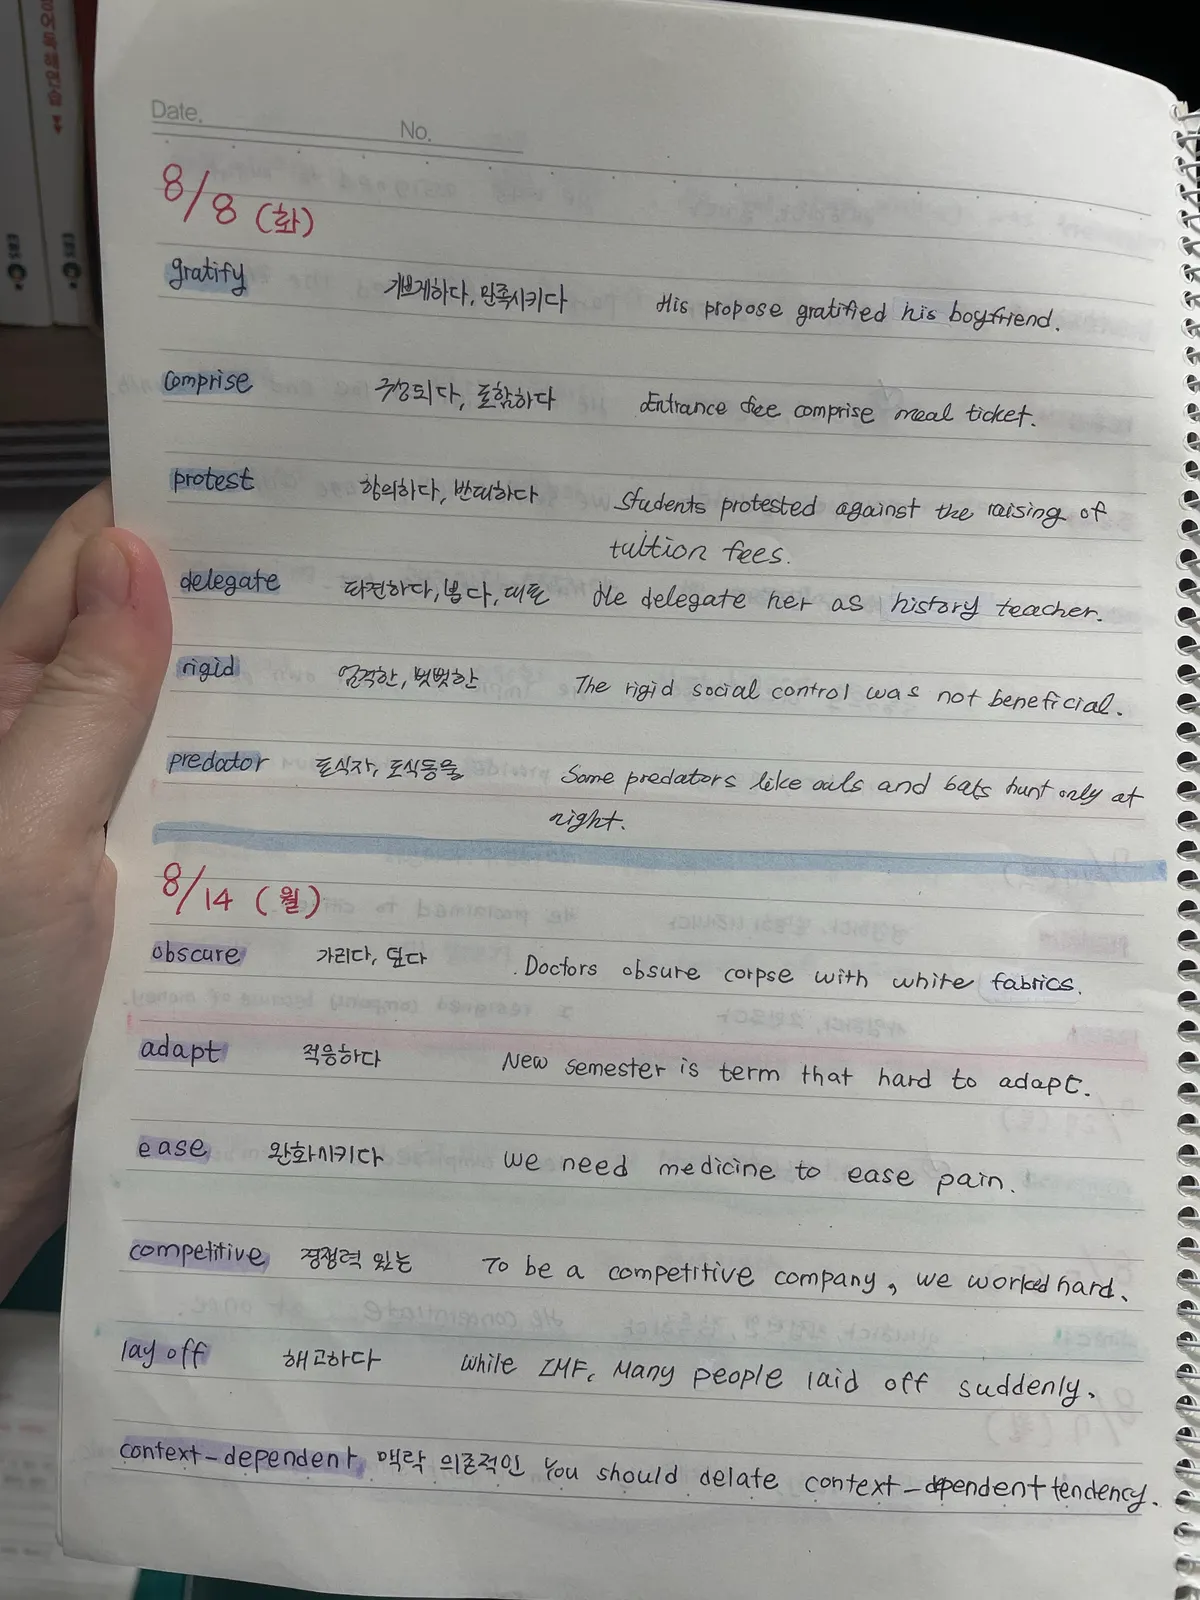 Date.
No.
8/8 (화)
gratify 기쁘게하다, 만족시키다 His propose gratified his boyfriend.
comprise 구성되다, 포함하다 Entrance fee comprise meal ticket.
protest 항의하다, 반대하다 Students protested against the raising of
tuition fees.
delegate 파견하다, 뽑다, 대표 He delegate her as history teacher.
rigid 엄격한, 뻣뻣한 The rigid social control was not beneficial.
predator 포식자, 포식동물 Some predators like owls and bats hunt only at
night.
8/14 (월)
obscure 가리다, 덮다 Doctors obsure corpse with white fabrics.
adapt 적응하다 New semester is term that hard to adapt.
ease 완화시키다 we need medicine to ease pain.
competitive 경쟁력 있는 To be a competitive company, we worked hard.
lay off 해고하다 while IMF, Many people laid off suddenly.
context-dependent 맥락 의존적인 You should delate context-dpendent tendency.
EBS
EBS